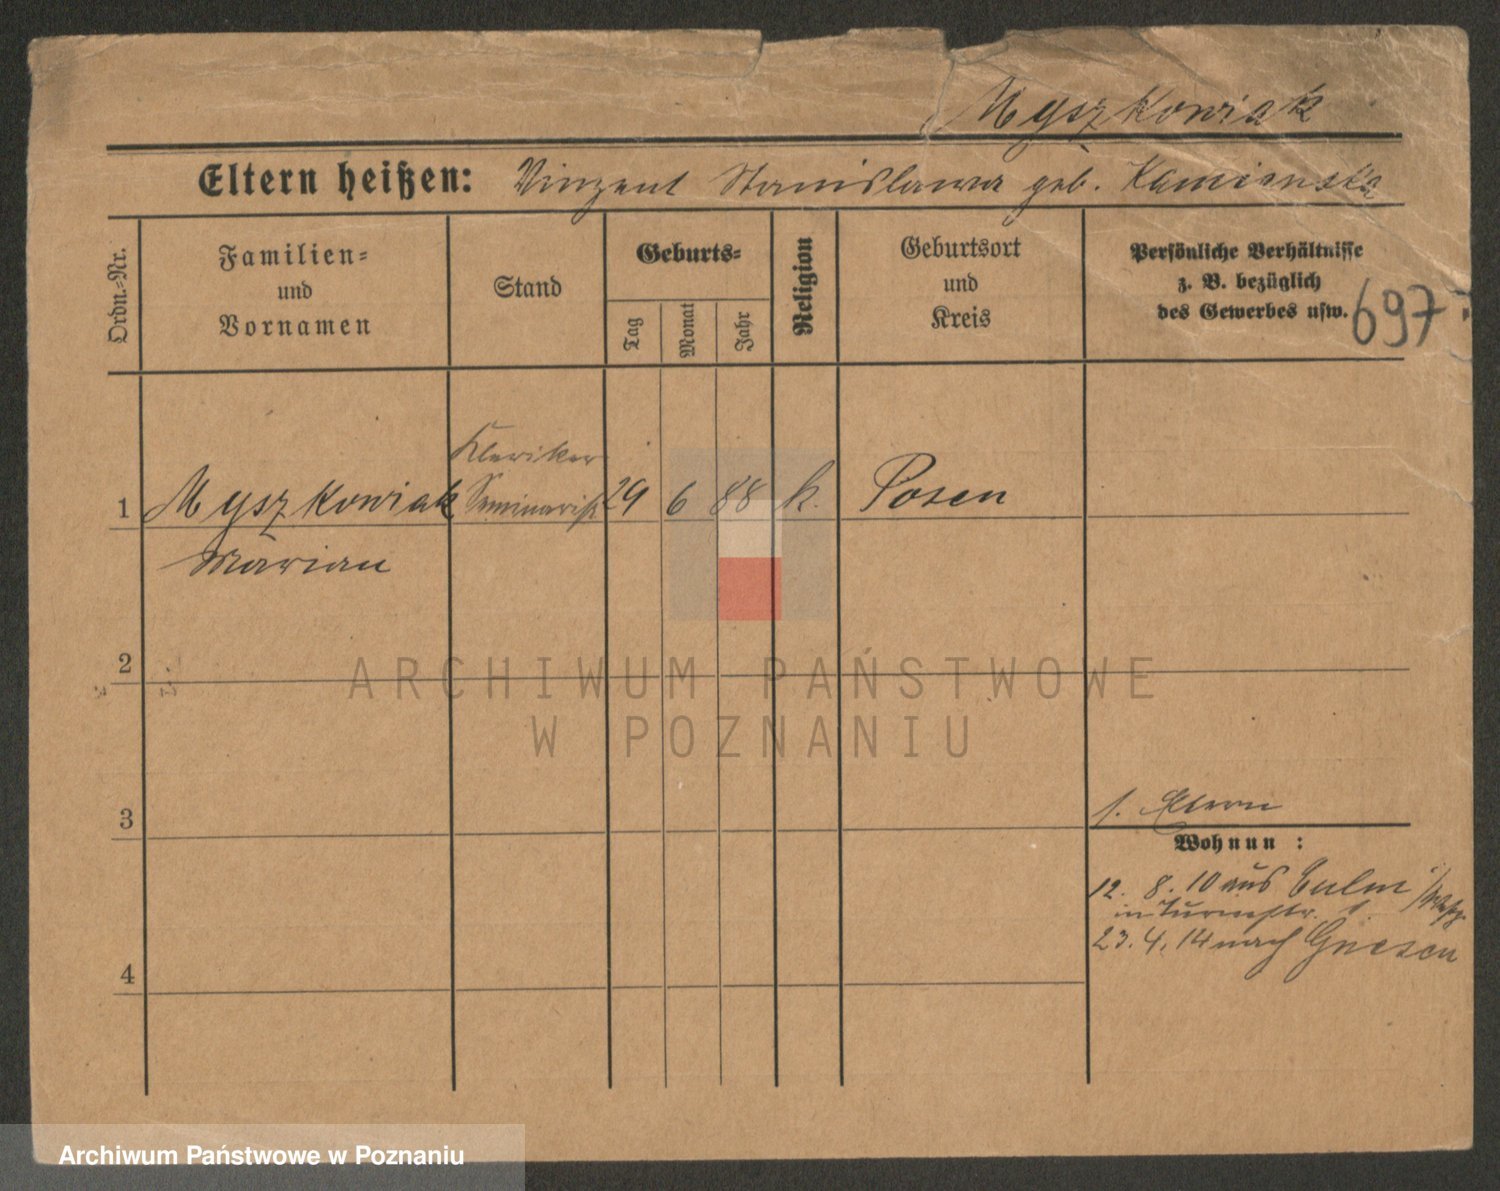 Myszkowiak
Eltern heißen: Vinzent Stanislawa geb. Kamienska
Ordn.=Nr.
Familien=
und
Vornamen
Stand
Geburts=
Tag
Monat
Jahr
Religion
Geburtsort
und
Kreis
Persönliche Verhältnisse
z. B. bezüglich
des Gewerbes usw.
697
Kleriker
1 Myszkowiak Seminarist 29 6 88 k. Posen
Marian
2
ARCHIWUM PAŃSTWOWE
W POZNANIU
3
s. Eltern
Wohnun :
12. 8. 10 aus Culm
in Turmstr. 1.
23. 4. 14 nach Gnesen
4
Archiwum Państwowe w Poznaniu